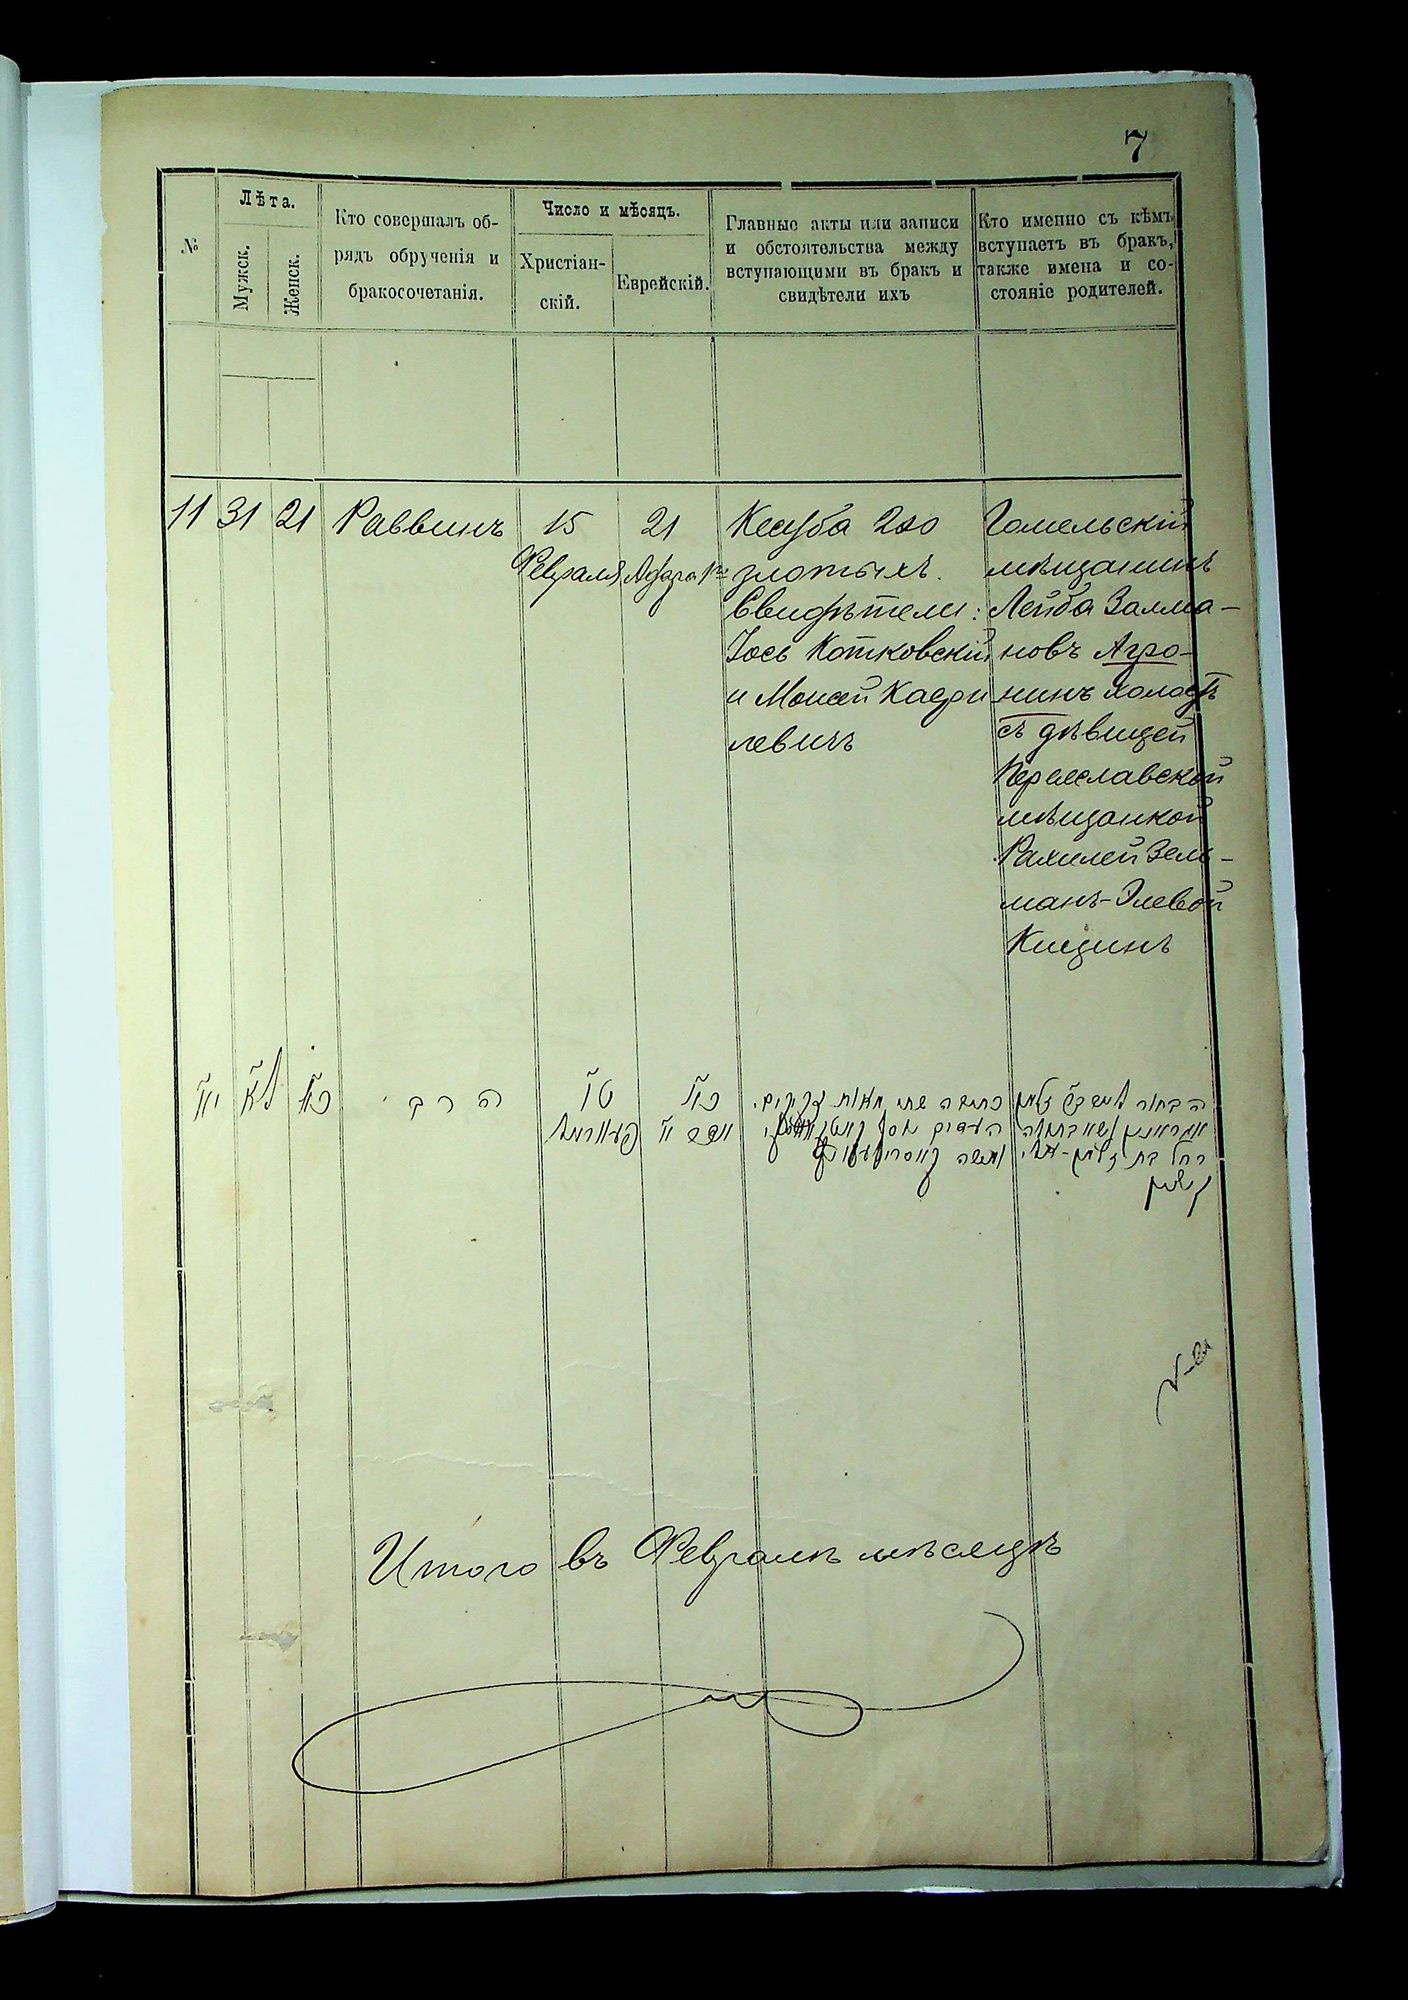 7
№
Лѣта.
Мужск.
Женск.
Кто совершалъ об-
рядъ обрученія и
бракосочетанія.
Число и мѣсяцъ.
Христіан-
скій.
Еврейскій.
Главные акты или записи
и обстоятельства между
вступающими въ бракъ и
свидѣтели ихъ
Кто именно съ кѣмъ
вступаетъ въ бракъ,
также имена и со-
стояніе родителей.
11
31
21
Раввинъ
15
Февраля
21
Адара 1го
Кесуба 200
злотыхъ.
Свидѣтели:
Іось Котковскій
и Моисей Касри
левичъ
Гомельскій
мѣщанинъ
Лейба Залма-
новъ Агро-
нинъ холостъ
съ дѣвицей
Переяславской
мѣщанкой
Рахилей Зель-
манъ-Элевой
Кищинъ
י״א
ל״א
כ״א
הרב
ט״ו
פעווראל
כ״א
אדר א׳
כתובה שתי מאות זקוקים.
העדים יוסף
ומשה
הבחור
נשא בתולה
רחל בת זלמן-עלי
Итого въ Февралѣ мѣсяцѣ